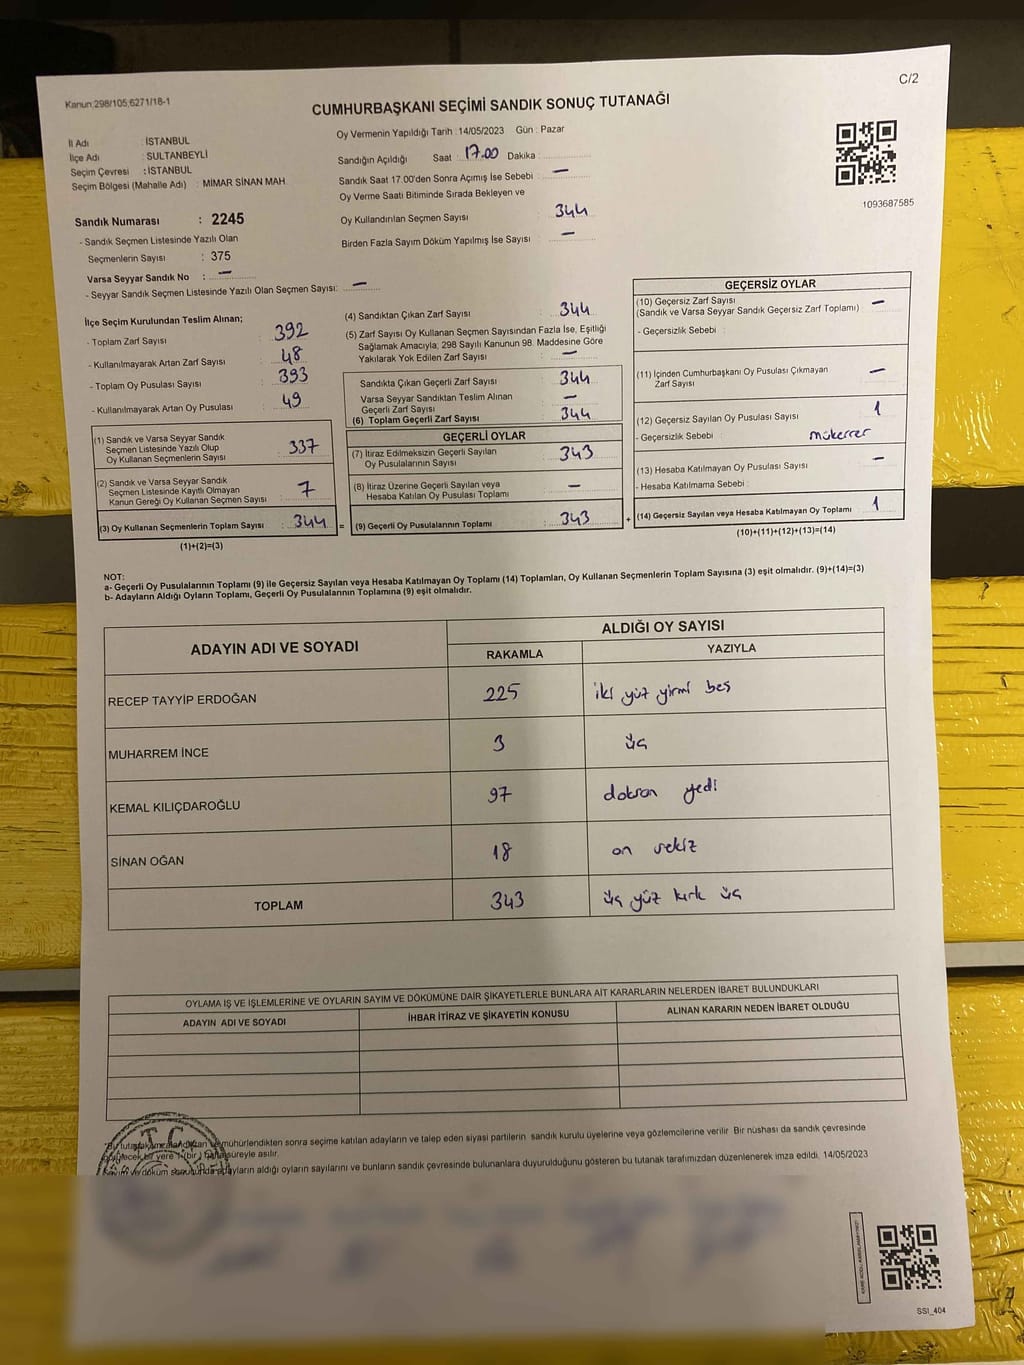 Kanun;298/105;6271/18-1
C/2
CUMHURBAŞKANI SEÇİMİ SANDIK SONUÇ TUTANAĞI
İl Adı : İSTANBUL
İlçe Adı : SULTANBEYLİ
Seçim Çevresi : İSTANBUL
Seçim Bölgesi (Mahalle Adı) : MİMAR SİNAN MAH.
Sandık Numarası : 2245
- Sandık Seçmen Listesinde Yazılı Olan
Seçmenlerin Sayısı : 375
Varsa Seyyar Sandık No : —
- Seyyar Sandık Seçmen Listesinde Yazılı Olan Seçmen Sayısı: —
Oy Vermenin Yapıldığı Tarih :14/05/2023 Gün : Pazar
Sandığın Açıldığı Saat : 17.00 Dakika :
Sandık Saat 17.00'den Sonra Açımış İse Sebebi : —
Oy Verme Saati Bitiminde Sırada Bekleyen ve
Oy Kullandırılan Seçmen Sayısı : 344
Birden Fazla Sayım Döküm Yapılmış İse Sayısı : —
1093687585
İlçe Seçim Kurulundan Teslim Alınan;
- Toplam Zarf Sayısı : 392
- Kullanılmayarak Artan Zarf Sayısı : 48
- Toplam Oy Pusulası Sayısı : 393
- Kullanılmayarak Artan Oy Pusulası : 49
(1) Sandık ve Varsa Seyyar Sandık
Seçmen Listesinde Yazılı Olup
Oy Kullanan Seçmenlerin Sayısı : 337
(2) Sandık ve Varsa Seyyar Sandık
Seçmen Listesinde Kayıtlı Olmayan
Kanun Gereği Oy Kullanan Seçmen Sayısı : 7
(3) Oy Kullanan Seçmenlerin Toplam Sayısı : 344 =
(1)+(2)=(3)
(4) Sandıktan Çıkan Zarf Sayısı : 344
(5) Zarf Sayısı Oy Kullanan Seçmen Sayısından Fazla İse, Eşitliği
Sağlamak Amacıyla, 298 Sayılı Kanunun 98. Maddesine Göre
Yakılarak Yok Edilen Zarf Sayısı : —
Sandıkta Çıkan Geçerli Zarf Sayısı : 344
Varsa Seyyar Sandıktan Teslim Alınan
Geçerli Zarf Sayısı : —
(6) Toplam Geçerli Zarf Sayısı : 344
GEÇERLİ OYLAR
(7) İtiraz Edilmeksizin Geçerli Sayılan
Oy Pusulalarının Sayısı : 343
(8) İtiraz Üzerine Geçerli Sayılan veya
Hesaba Katılan Oy Pusulası Toplamı : —
(9) Geçerli Oy Pusulalarının Toplamı : 343 +
GEÇERSİZ OYLAR
(10) Geçersiz Zarf Sayısı : —
(Sandık ve Varsa Seyyar Sandık Geçersiz Zarf Toplamı)
- Geçersizlik Sebebi :
(11) İçinden Cumhurbaşkanı Oy Pusulası Çıkmayan
Zarf Sayısı : —
(12) Geçersiz Sayılan Oy Pusulası Sayısı : 1
- Geçersizlik Sebebi : mükerrer
(13) Hesaba Katılmayan Oy Pusulası Sayısı : —
- Hesaba Katılmama Sebebi :
(14) Geçersiz Sayılan veya Hesaba Katılmayan Oy Toplamı : 1
(10)+(11)+(12)+(13)=(14)
NOT:
a- Geçerli Oy Pusulalarının Toplamı (9) ile Geçersiz Sayılan veya Hesaba Katılmayan Oy Toplamı (14) Toplamları, Oy Kullanan Seçmenlerin Toplam Sayısına (3) eşit olmalıdır. (9)+(14)=(3)
b- Adayların Aldığı Oyların Toplamı, Geçerli Oy Pusulalarının Toplamına (9) eşit olmalıdır.
ADAYIN ADI VE SOYADI ALDIĞI OY SAYISI
RAKAMLA YAZIYLA
RECEP TAYYİP ERDOĞAN 225 iki yüz yirmi beş
MUHARREM İNCE 3 üç
KEMAL KILIÇDAROĞLU 97 doksan yedi
SİNAN OĞAN 18 on sekiz
TOPLAM 343 üç yüz kırk üç
OYLAMA İŞ VE İŞLEMLERİNE VE OYLARIN SAYIM VE DÖKÜMÜNE DAİR ŞİKAYETLERLE BUNLARA AİT KARARLARIN NELERDEN İBARET BULUNDUKLARI
ADAYIN ADI VE SOYADI İHBAR İTİRAZ VE ŞİKAYETİN KONUSU ALINAN KARARIN NEDEN İBARET OLDUĞU
mühürlendikten sonra seçime katılan adayların ve talep eden siyasi partilerin sandık kurulu üyelerine veya gözlemcilerine verilir. Bir nüshası da sandık çevresinde
yere 1 (bir) hafta süreyle asılır.
adayların aldığı oyların sayılarını ve bunların sandık çevresinde bulunanlara duyurulduğunu gösteren bu tutanak tarafımızdan düzenlenerek imza edildi. 14/05/2023
T.C.
SSİ_404